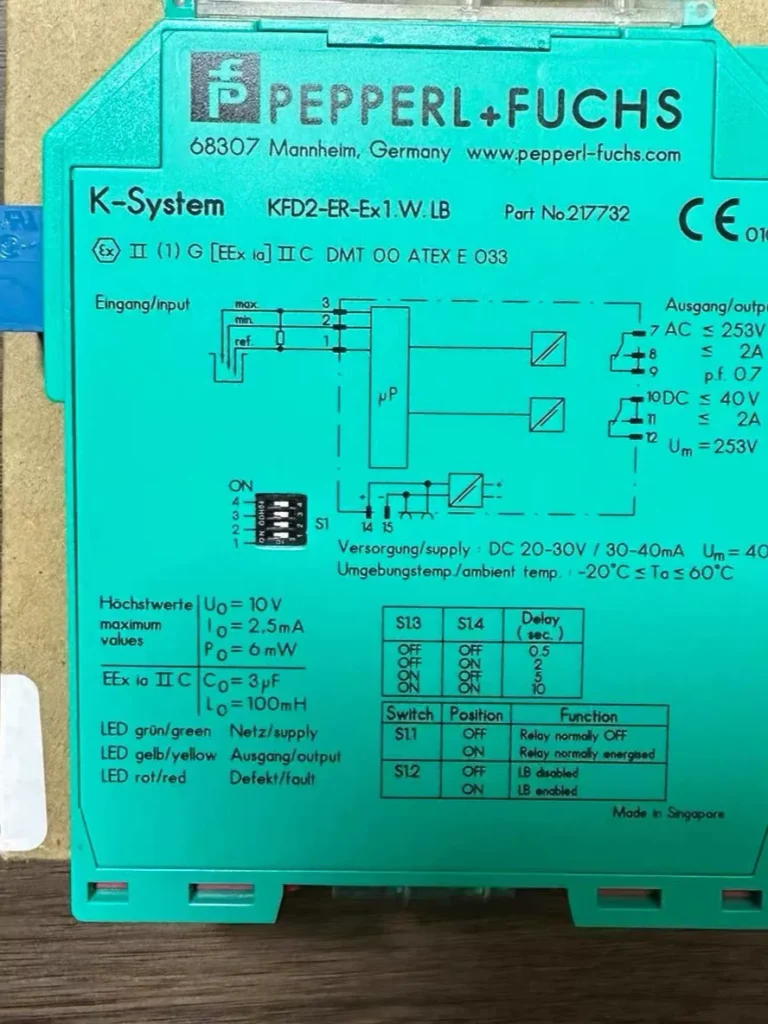 PEPPERL+FUCHS
68307 Mannheim, Germany www.pepperl-fuchs.com
K-System KFD2-ER-Ex1.W.LB Part No.217732
CE 010
Ex II (1) G [EEx ia] II C DMT 00 ATEX E 033
Eingang/input
max. 3
min. 2
ref. 1
µP
Ausgang/outpu
7 AC ≤ 253V
8 ≤ 2A
9 p.f. 0.7
10 DC ≤ 40V
11 ≤ 2A
12
Um = 253V
ON
4
3
2
1
S1
+ -
14 15
+
-
Versorgung/supply : DC 20-30V / 30-40mA Um = 40
Umgebungstemp./ambient temp. : -20°C ≤ Ta ≤ 60°C
Höchstwerte Uo = 10V
maximum Io = 2,5mA
values Po = 6mW
EEx ia II C Co = 3µF
Lo = 100mH
LED grün/green Netz/supply
LED gelb/yellow Ausgang/output
LED rot/red Defekt/fault
S1.3 S1.4 Delay
(sec.)
OFF OFF 0.5
OFF ON 2
ON OFF 5
ON ON 10
Switch Position Function
S1.1 OFF Relay normally OFF
ON Relay normally energised
S1.2 OFF LB disabled
ON LB enabled
Made in Singapore